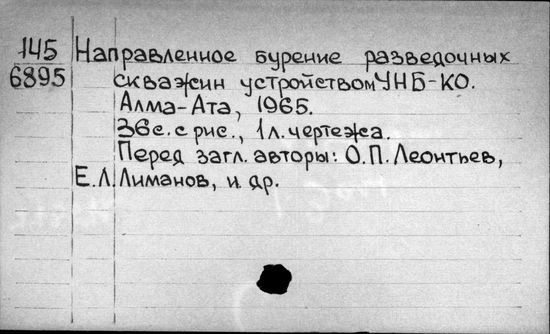 145
6895
Направленное бурение разведочных
скважин устройством УНБ-КО.
Алма-Ата, 1965.
36с. с рис., 1л. чертежа.
Перед загл. авторы: О.П. Леонтьев,
Е.Л. Лиманов, и др.